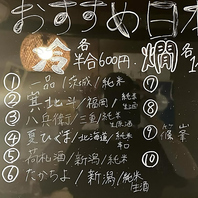 おすすめ日本
冷 各半合600円. 燗 各1
① 一品/茨城/純米
② 寒北斗/福岡/純米生酒
③ 八兵衛/三重/純米生原酒
④ 夏ひぐま/北海道/純米辛口
⑤ 荷札酒/新潟/純米
⑥ たかちよ/新潟/純米生酒
⑦
⑧
⑨ 篠峯
⑩